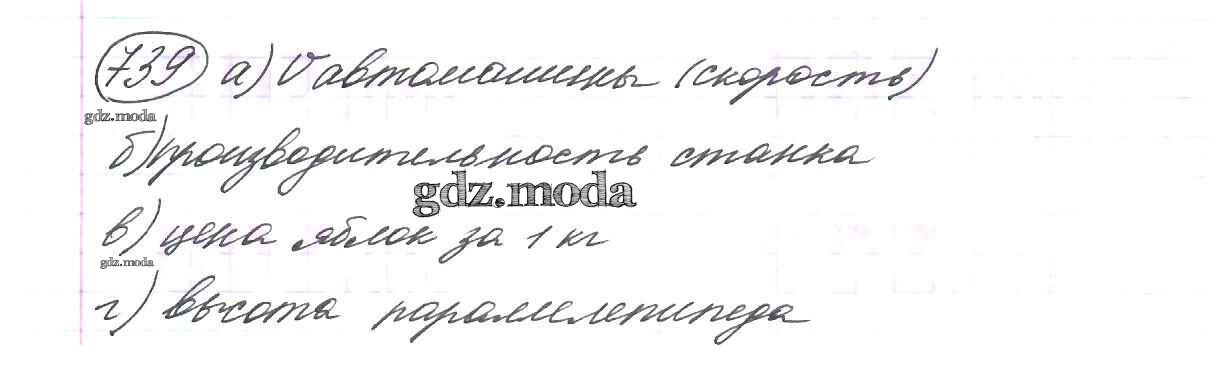 739 а) V автомашины (скорость)
gdz.moda
б) производительность станка
gdz.moda
в) цена яблок за 1 кг
gdz.moda
г) высота параллелепипеда